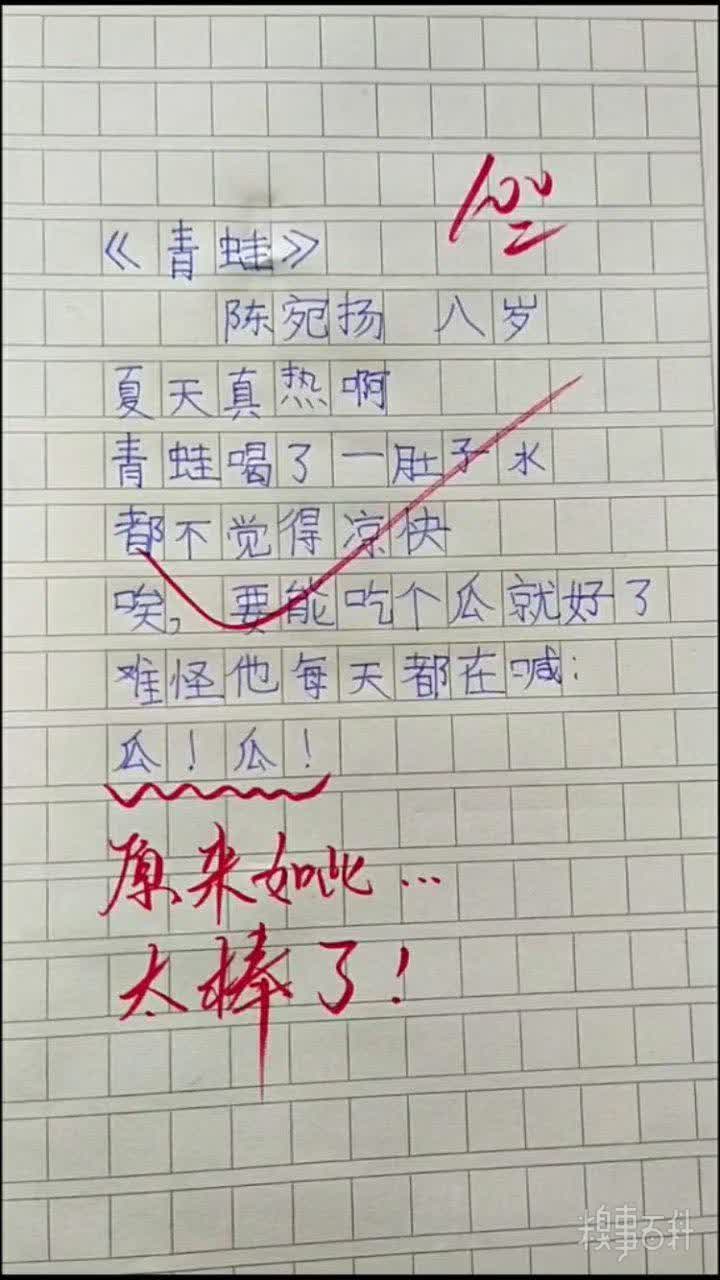 100
《青蛙》
陈宛扬 八岁
夏天真热啊
青蛙喝了一肚子水
都不觉得凉快
唉，要能吃个瓜就好了
难怪他每天都在喊：
瓜！瓜！
原来如此…
太棒了！
糗事百科